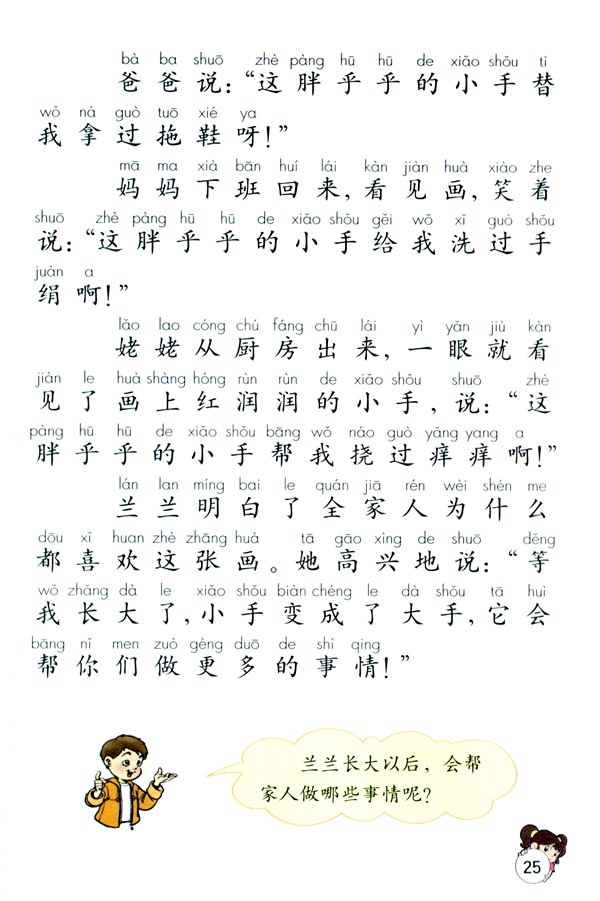 bà ba shuō zhè pàng hū hū de xiǎo shǒu tì
爸爸说：“这胖乎乎的小手替
wǒ ná guò tuō xié ya
我拿过拖鞋呀！”
mā ma xià bān huí lái kàn jiàn huà xiào zhe
妈妈下班回来，看见画，笑着
shuō zhè pàng hū hū de xiǎo shǒu gěi wǒ xǐ guò shǒu
说：“这胖乎乎的小手给我洗过手
juàn a
绢啊！”
lǎo lao cóng chú fáng chū lái yì yǎn jiù kàn
姥姥从厨房出来，一眼就看
jiàn le huà shàng hóng rùn rùn de xiǎo shǒu shuō zhè
见了画上红润润的小手，说：“这
pàng hū hū de xiǎo shǒu bāng wǒ náo guò yǎng yang a
胖乎乎的小手帮我挠过痒痒啊！”
lán lan míng bai le quán jiā rén wèi shén me
兰兰明白了全家人为什么
dōu xǐ huan zhè zhāng huà tā gāo xìng de shuō děng
都喜欢这张画。她高兴地说：“等
wǒ zhǎng dà le xiǎo shǒu biàn chéng le dà shǒu tā huì
我长大了，小手变成了大手，它会
bāng nǐ men zuò gèng duō de shì qing
帮你们做更多的事情！”
兰兰长大以后，会帮
家人做哪些事情呢？
25